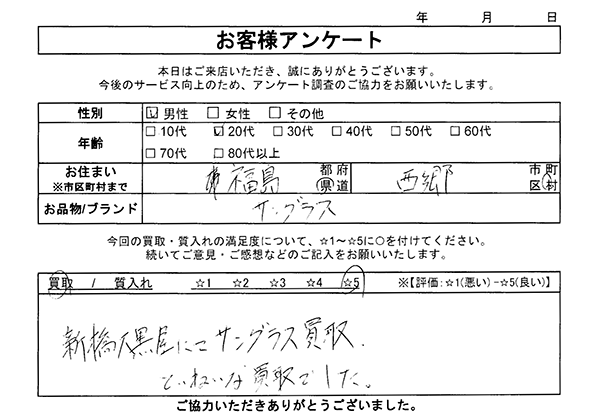 年 月 日
お客様アンケート
本日はご来店いただき、誠にありがとうございます。
今後のサービス向上のため、アンケート調査のご協力をお願いいたします。
性別 ☑ 男性 □ 女性 □ その他
年齢 □ 10代 ☑ 20代 □ 30代 □ 40代 □ 50代 □ 60代
□ 70代 □ 80代以上
お住まい 福島 都府 西郷 市町
※市区町村まで 県道 区村
お品物/ブランド サングラス
今回の買取・質入れの満足度について、☆1～☆5に○を付けてください。
続いてご意見・ご感想などのご記入をお願いいたします。
買取 / 質入れ ☆1 ☆2 ☆3 ☆4 ☆5 ※【評価:☆1(悪い)-☆5(良い)】
新橋大黒屋にてサングラス買取.
ていねいな買取でした。
ご協力いただきありがとうございました。